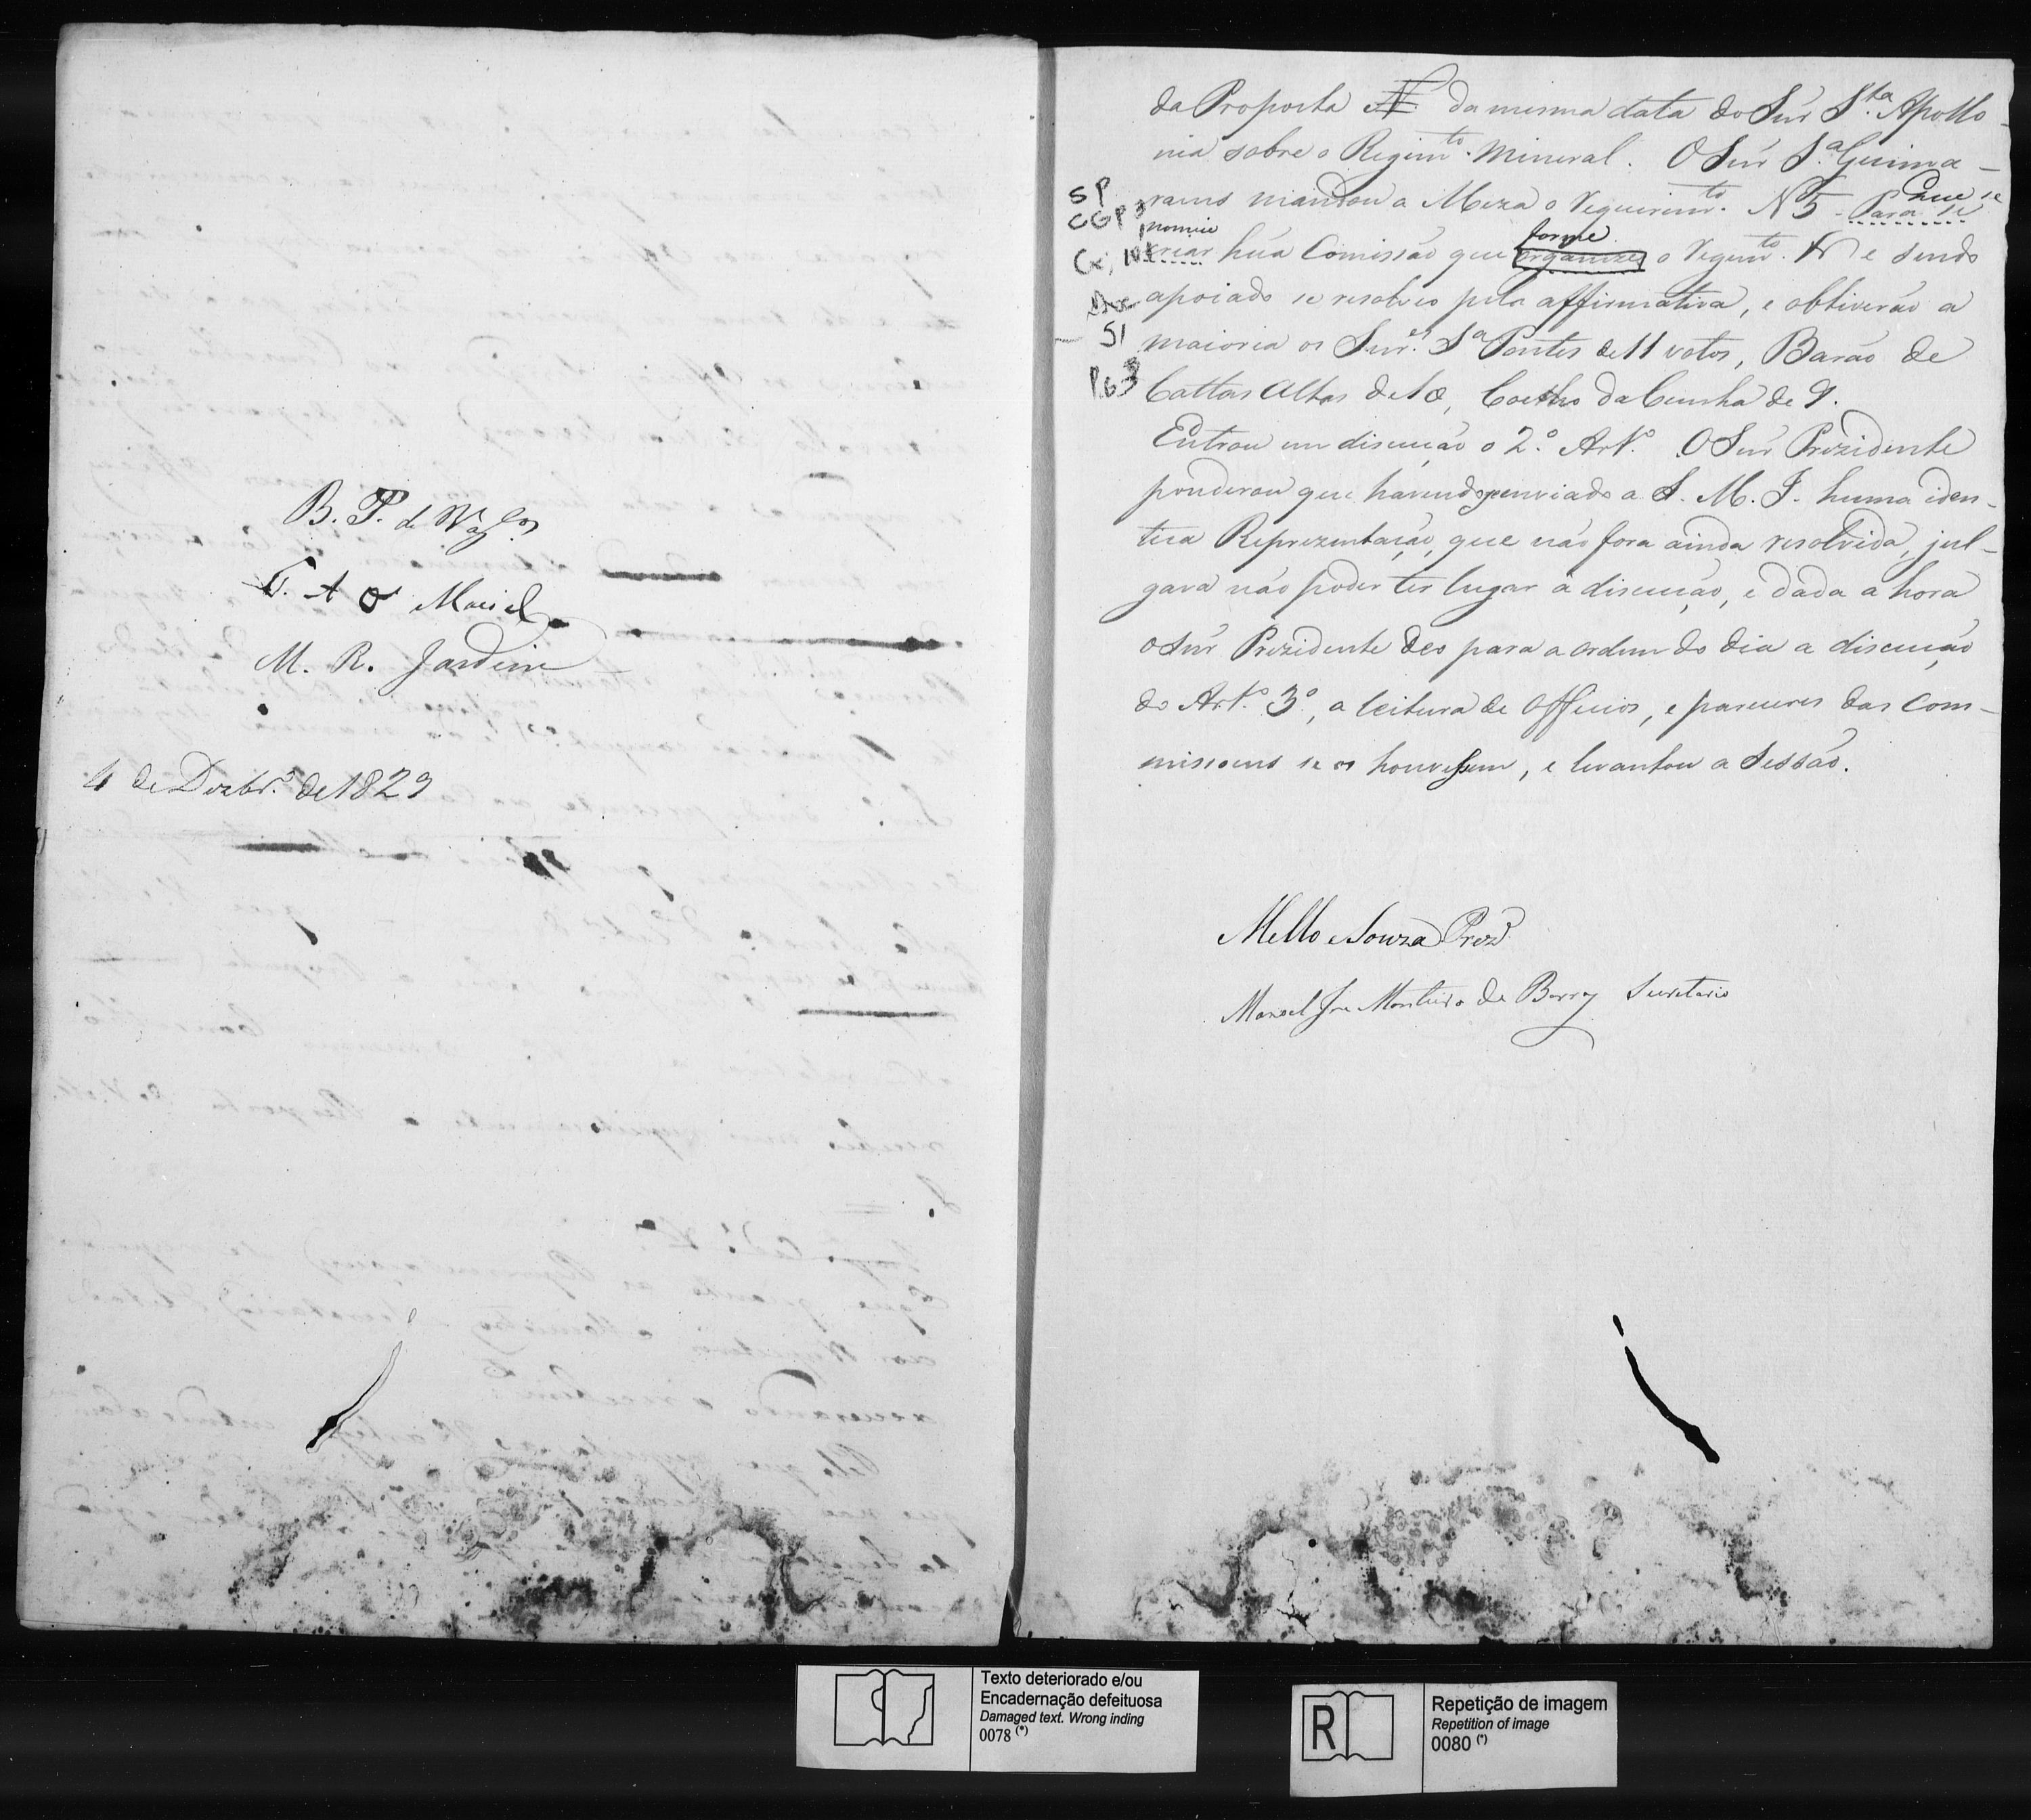 B. P. de Vas.cos
M. R. Jardim
4 de Dezbr.º de 1829
da Proposta N da mesma data do Snr S.ta Apollo-
nia sobre o Regim.to Mineral. O Snr S.ª Guima-
raens mandou a Meza o Requerim.to N 5 - Para se
Que se
nomeie
criar hũa Comissão que organize o Regim.to N e sendo
forme
apoiado se resolveo pela affirmativa, e obtiverão a
maioria os Snr.es S.ª Pontes de 11 votos, Barão de
Cattas Altas de 10, Coelho da Cunha de 9.
Entrou em discução o 2.º Art.º O Snr Prezidente
ponderou que havendo-se enviado a S. M. I. huma iden-
tica Reprezentação, que não fora ainda resolvida, jul-
gava não poder ter lugar a discução, e dada a hora
o Snr Prezidente deo para a ordem do dia a discução
do Art.º 3.º, a leitura de Officios, e pareceres das Com-
missoens se os houvessem, e levantou a Sessão.
SP
CGP3
Cx, 10
51
PG3
Mello e Souza Prez.e
Manoel Joze Monteiro de Barros Secretario
Texto deteriorado e/ou
Encadernação defeituosa
Damaged text. Wrong inding
0078 (*)
R
Repetição de imagem
Repetition of image
0080 (*)